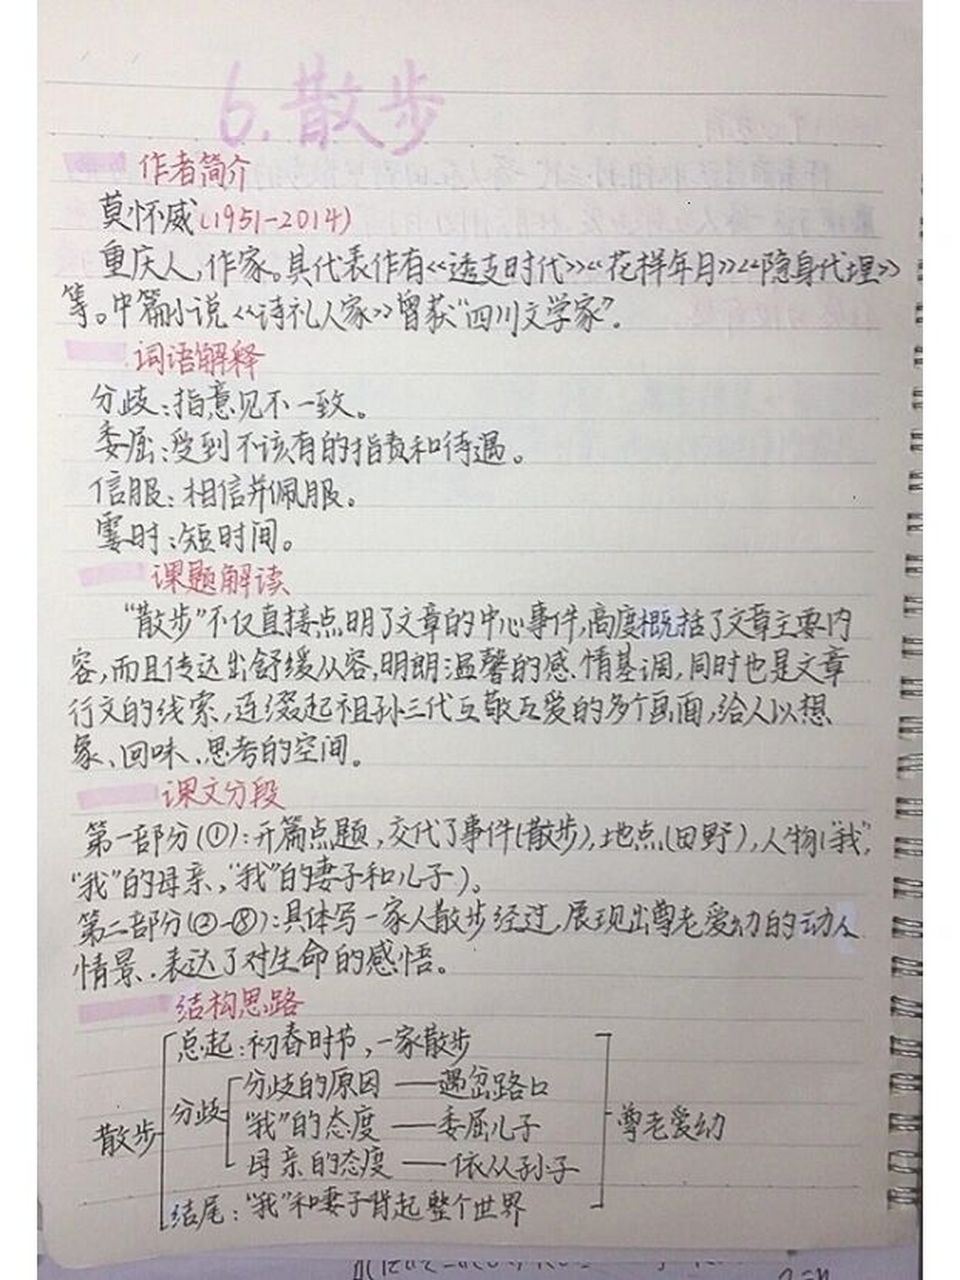 6.散步
作者简介
莫怀威(1951-2014)
重庆人,作家。具代表作有《透支时代》《花样年月》《隐身代理》
等。中篇小说《诗礼人家》曾获“四川文学家”。
词语解释
分歧:指意见不一致。
委屈:受到不该有的指责和待遇。
信服:相信并佩服。
霎时:短时间。
课题解读
“散步”不仅直接点明了文章的中心事件,高度概括了文章主要内
容,而且传达出舒缓从容,明朗温馨的感情基调,同时也是文章
行文的线索,连缀起祖孙三代互敬互爱的多个画面,给人以想
象、回味、思考的空间。
课文分段
第一部分(①):开篇点题,交代了事件(散步),地点(田野),人物(“我”,
“我”的母亲,“我”的妻子和儿子)。
第二部分(②-⑧):具体写一家人散步经过,展现出尊老爱幼的动人
情景.表达了对生命的感悟。
结构思路
总起:初春时节,一家散步
分歧的原因——遇岔路口
散步 分歧 “我”的态度——委屈儿子 尊老爱幼
母亲的态度——依从孙子
结尾:“我”和妻子背起整个世界